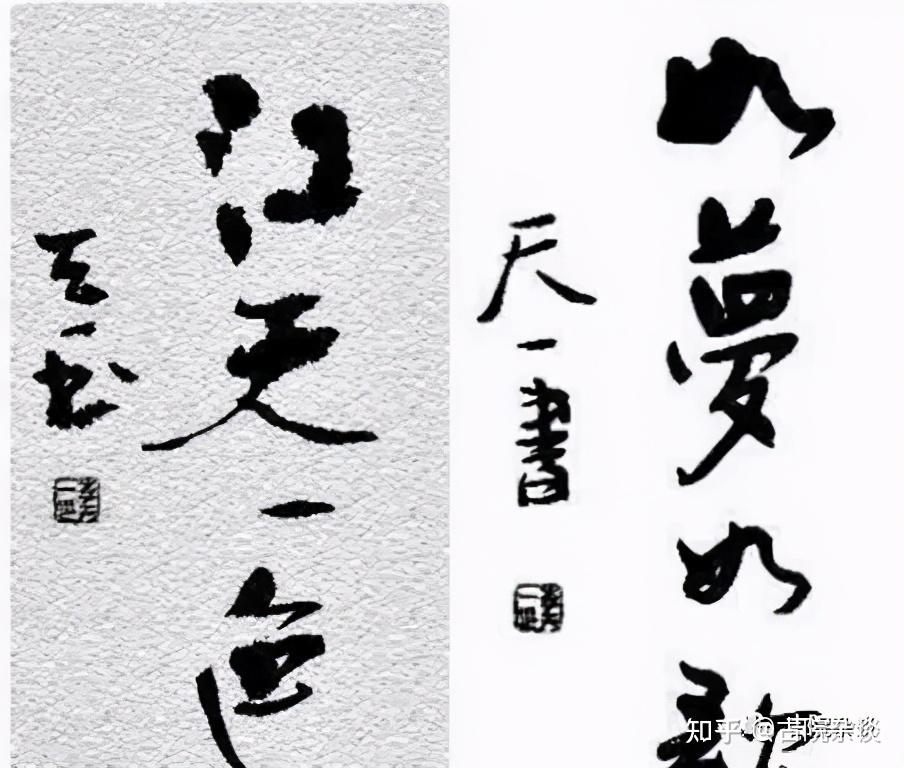 如夢如歌
天一書
江天一色
天一书
知乎 @古院杂谈